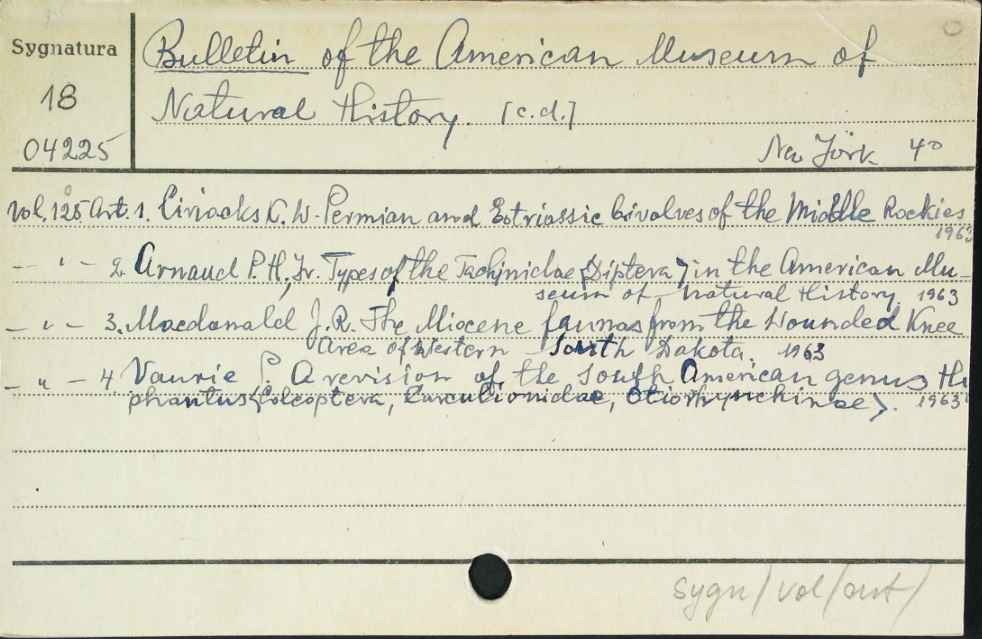 Sygnatura
18
04225
Bulletin of the American Museum of
Natural History. [c.d.]
New Jörk. 4°
Vol. 125. Art. 1. Ciriacks K. W. Permian and Eotriassic bivalves of the Middle Rockies
1963
— " — 2. Arnaud P. H., Jr. Types of the Tachinidae <Diptera> in the American Mu-
seum of Natural History. 1963
— " — 3. Macdonald J. R. The Miocene faunas from the Wounded Knee
Area of Western South Dakota. 1963
— " — 4. Vaurie P. A revision of the South American genus Hy
phantus <Coleoptera, Curculionidae, Otiorhynchinae>. 1963
sygn/vol/art/